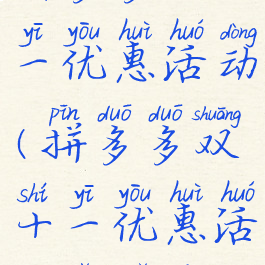 yī yōu huì huó dòng
一优惠活动
pīn duō duō shuāng
(拼多多双
shí yī yōu huì huó
十一优惠活